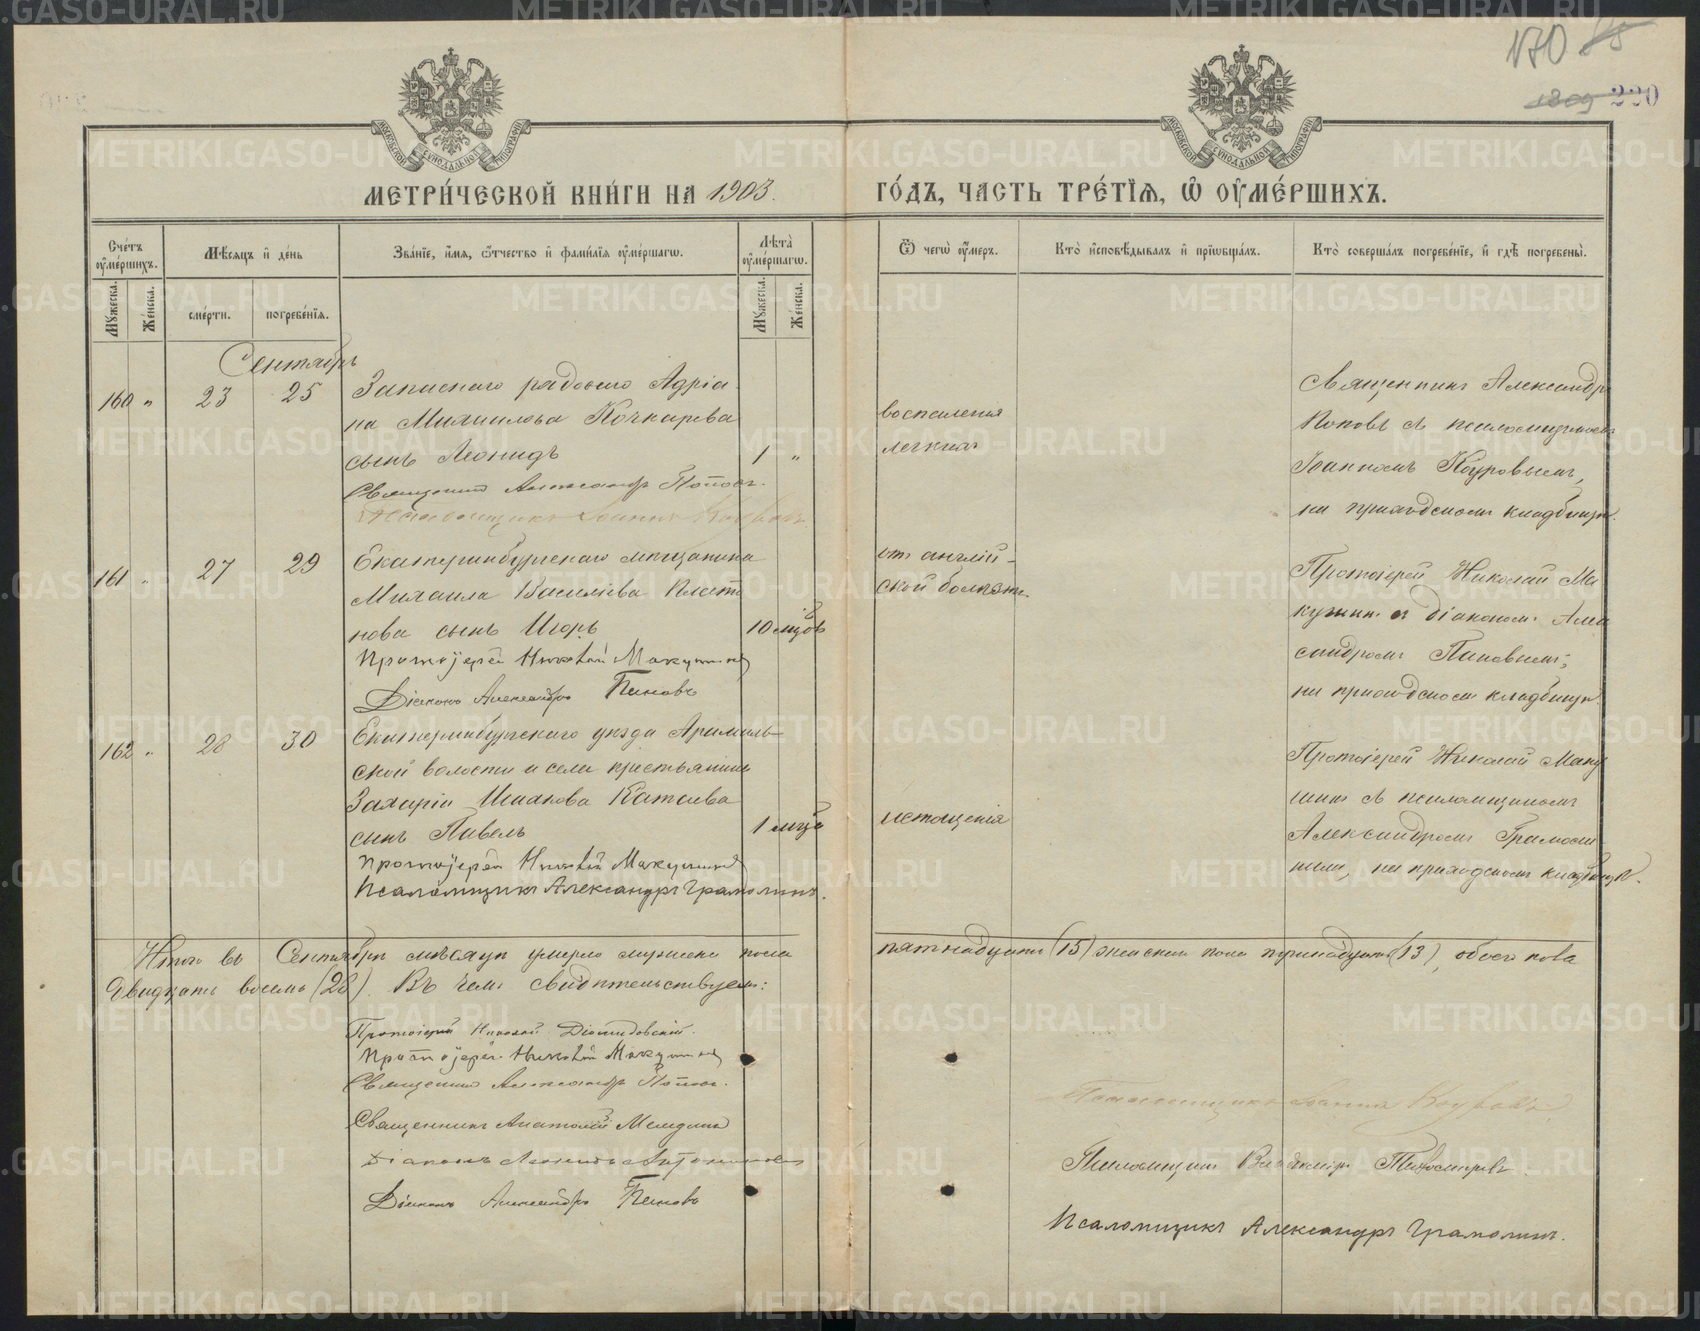 170
220
МЕТРИ́ЧЕСКОЙ КНИ́ГИ НА 1903.
ГО́ДЪ, ЧАСТЬ ТРЕ́ТІЯ, Ѿ ОУМЕ́РШИХЪ.
Сче́тъ оуме́ршихъ.
Мѣсяцъ и де́нь
Зва́ніе, и́мя, ѻ́тчество и фами́лія оуме́ршагѡ.
Лѣта̀ оуме́ршагѡ.
Ѿ чегѡ̀ оу́меръ.
Кто̀ исповѣ́дывалъ и пріобща́лъ.
Кто̀ соверша́лъ погребе́ніе, и гдѣ̀ погребены̀.
Му́жеска.
Же́нска.
сме́рти.
погребе́нія.
Му́жеска.
Же́нска.
Сентябрь
160 " 23 25
Запаснаго рядового Адріа
на Михаилова Кочкарева
сынъ Леонидъ 1 "
Священникъ Александръ Поповъ.
Псаломщикъ Іоаннъ Коуровъ
воспаленія
легкихъ
Священникъ Александръ
Поповъ съ псаломщикомъ
Іоанномъ Коуровымъ,
на приходскомъ кладбищѣ.
161 " 27 29
Екатеринбургскаго мѣщанина
Михаила Васильева Плато
нова сынъ Игорь 10 мцвъ
Протоіерей Николай Макушинъ
Діаконъ Александръ Пановъ
отъ англій-
ской болѣзни
Протоіерей Николай Ма
кушинъ съ діакономъ Алек
сандромъ Пановымъ;
на приходскомъ кладбищѣ.
162 " 28 30
Екатеринбургскаго уѣзда Арамиль-
ской волости и села крестьянина
Захаріи Иванова Катаева
сынъ Павелъ 1 мца
Протоіерей Николай Макушинъ
Псаломщикъ Александръ Грамолинъ.
истощенія
Протоіерей Николай Маку
шинъ съ псаломщикомъ
Александромъ Грамоли
нымъ, на приходскомъ кладбищѣ.
Итого въ Сентябрѣ мѣсяцѣ умерло мужеска пола
пятнадцать (15) женскаго пола тринадцать (13), обоего пола
двадцать восемь (28). Въ чемъ свидѣтельствуемъ:
Протоіерей Николай Діомидовскій.
Протоіерей Николай Макушинъ
Священникъ Александръ Поповъ.
Священникъ Анатолій
Діаконъ Леонидъ
Діаконъ Александръ Пановъ
Псаломщикъ Іоаннъ Коуровъ
Псаломщикъ Владиміръ Тихомировъ.
Псаломщикъ Александръ Грамолинъ.
METRIKI.GASO-URAL.RU